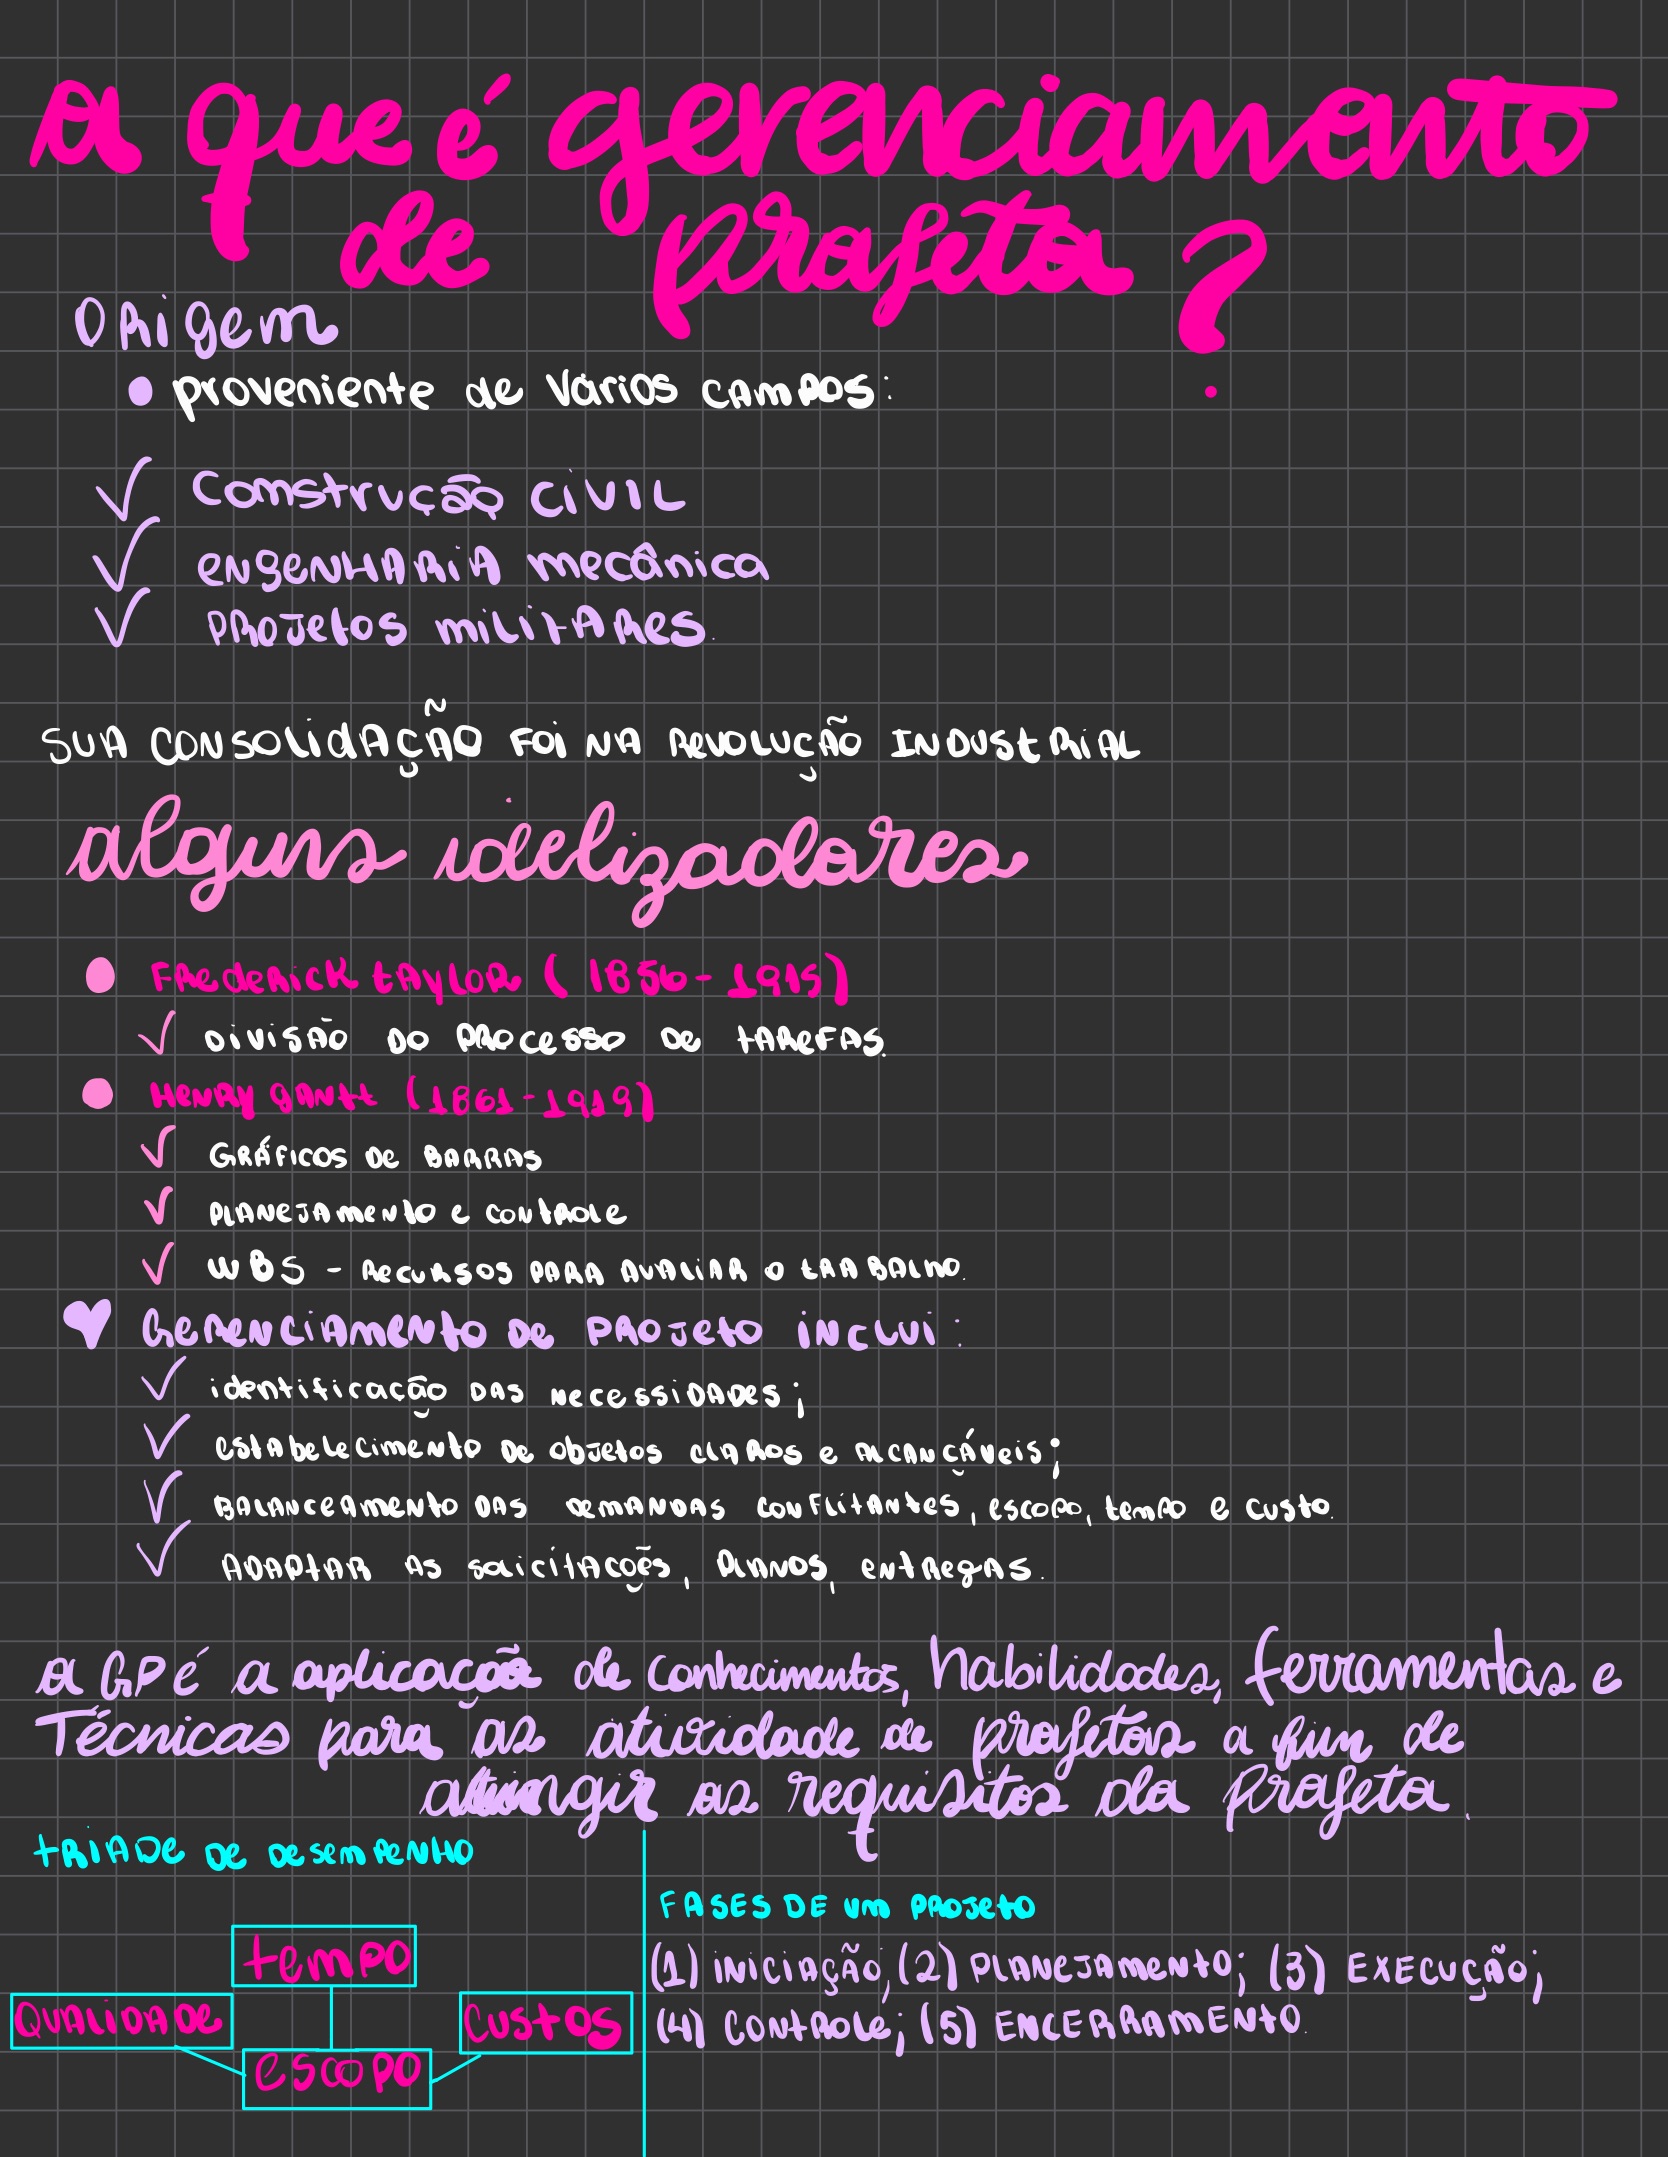 O que é gerenciamento
de projeto?
Origem
proveniente de vários campos:
Construção civil
engenharia mecânica
projetos militares.
SUA CONSOLIDAÇÃO FOI NA REVOLUÇÃO INDUSTRIAL
alguns idelizadores
Frederick Taylor (1856-1915)
DIVISÃO DO PROCESSO DE TAREFAS.
Henry Gantt (1861-1919)
GRÁFICOS DE BARRAS
PLANEJAMENTO E CONTROLE
WBS - RECURSOS PARA AVALIAR O TRABALHO.
Gerenciamento de projeto inclui:
identificação das necessidades;
estabelecimento de objetos claros e alcançáveis;
Balanceamento das demandas conflitantes, escopo, tempo e custo.
Adaptar as solicitações, planos, entregas.
O GP é a aplicação de conhecimentos, habilidades, ferramentas e
Técnicas para as atividade de projetos a fim de
atingir os requisitos do projeto.
TRIADE DE DESEMPENHO
FASES DE UM PROJETO
tempo
(1) INICIAÇÃO; (2) PLANEJAMENTO; (3) EXECUÇÃO;
QUALIDADE
CUSTOS
(4) CONTROLE; (5) ENCERRAMENTO.
escopo